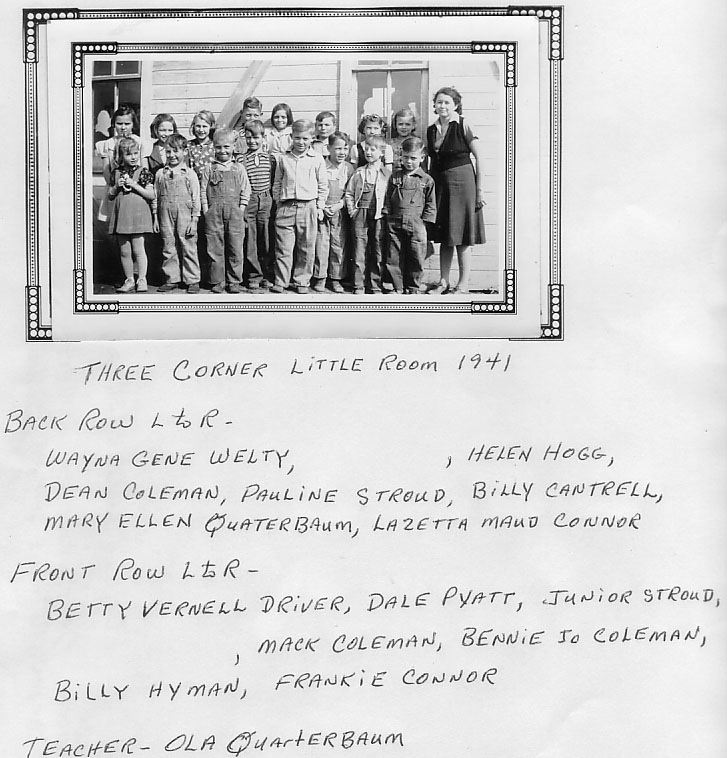 THREE CORNER LITTLE ROOM 1941
BACK ROW L to R -
WAYNA GENE WELTY, , HELEN HOGG,
DEAN COLEMAN, PAULINE STROUD, BILLY CANTRELL,
MARY ELLEN QUATERBAUM, LAZETTA MAUD CONNOR
FRONT ROW L to R -
BETTY VERNELL DRIVER, DALE PYATT, JUNIOR STROUD,
, MACK COLEMAN, BENNIE JO COLEMAN,
BILLY HYMAN, FRANKIE CONNOR
TEACHER - OLA QUARTERBAUM